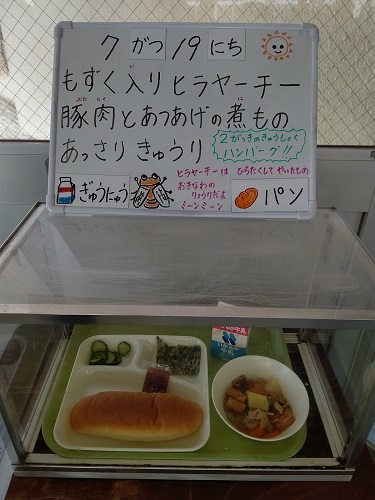 7 がつ 19 にち
もずく入り ヒラヤーチー
豚肉とあつあげの煮もの
ぶた にく に
あっさり きゅうり
2がっきのきゅうしょく
ハンバーグ!!
ヒラヤーチーは ひらたくして やいたもの
おきなわの
りょうりだよ
ミーンミーン
ぎゅうにゅう
パン
牛乳